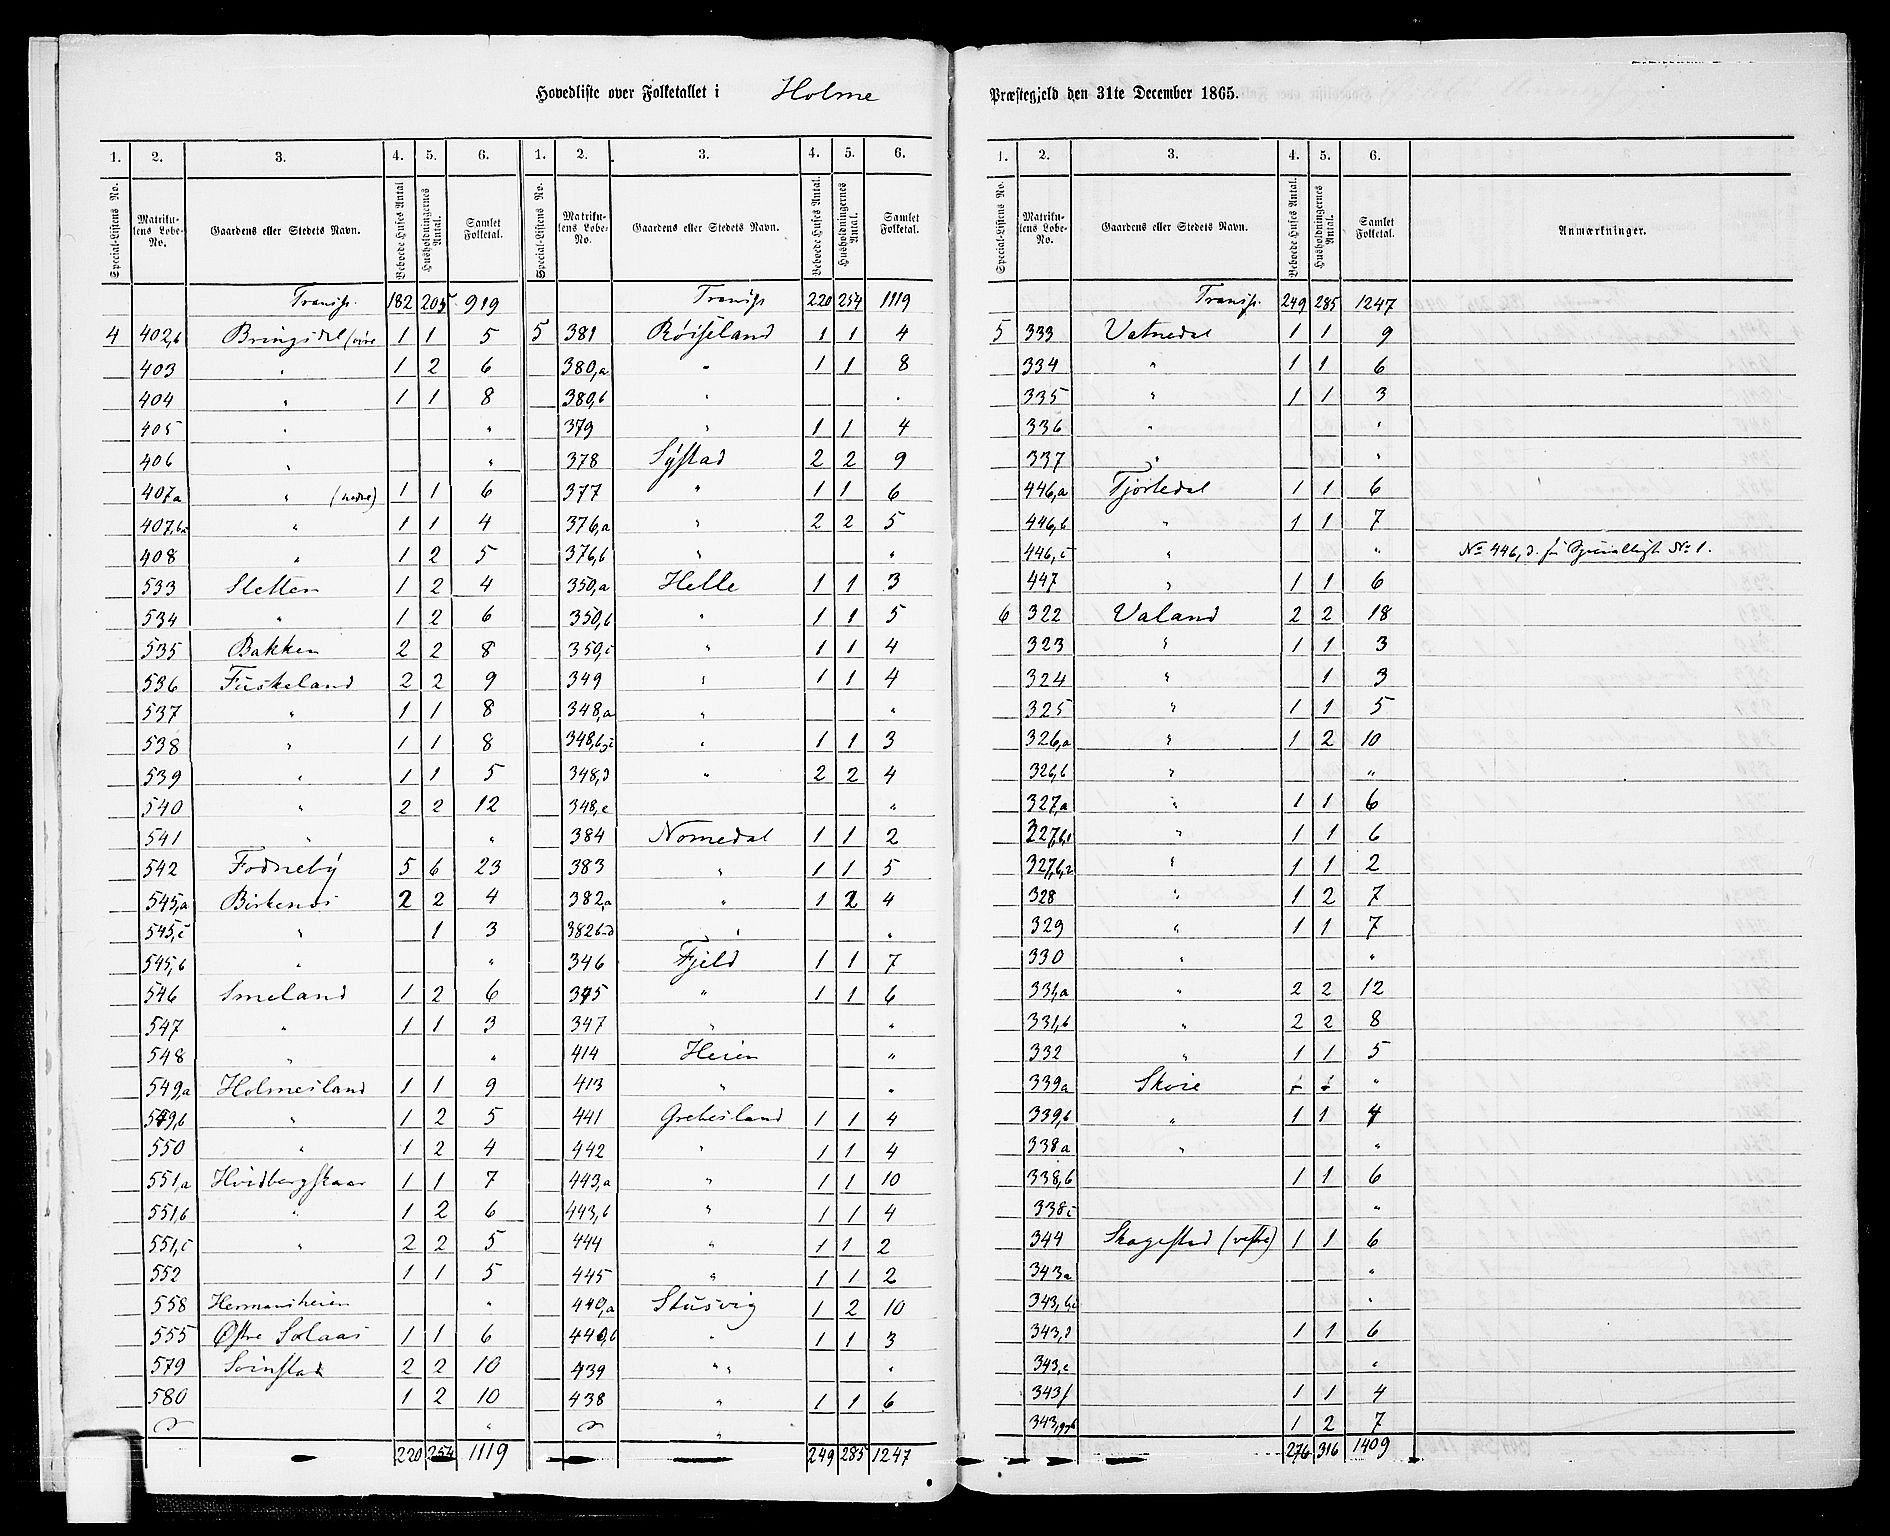 Hovedliste over Folketallet i Holme Præstegjeld den 31te December 1865.
1. 2. 3. 4. 5. 6. 1. 2. 3. 4. 5. 6.
Special-Listens No. Matrikulens Løbe-No. Gaardens eller Stedets Navn. Beboede Huses Antal Husholdningernes Antal. Samlet Folketal. Special-Listens No. Matrikulens Løbe-No. Gaardens eller Stedets Navn. Beboede Huses Antal. Husholdningernes Antal. Samlet Folketal.
Transp. 182 205 919 Transp 220 254 1119
4 402,b Bringsdal (øvre 1 1 5 5 381 Røiseland 1 1 4
403 " 1 2 6 380,a " 1 1 8
404 " 1 1 8 380,b " "
405 " " 379 " 1 1 4
406 " " 378 Systad 2 2 9
407a " (nedre) 1 1 6 377 " 1 1 6
407,b,c " 1 1 4 376,a " 2 2 5
408 " 1 2 5 376,b " "
533 Sletten 1 2 4 350,a Helle 1 1 3
534 " 1 2 6 350,b " 1 1 5
535 Bakken 2 2 8 350,c " 1 1 4
536 Fuskeland 2 2 9 349 " 1 1 4
537 " 1 1 8 348,a " "
538 " 1 1 8 348,b,c " 1 1 3
539 " 1 1 5 348,d " 2 2 4
540 " 2 2 12 348,e "
541 " " 384 Nomedal 1 1 2
542 Fodneby 5 6 23 383 " 1 1 5
545,a Birkenæs 2 2 4 382,a " 1 2 4
545,c " 1 3 382b-d " "
545,b " " 346 Fjeld 1 1 7
546 Smeland 1 2 6 345 " 1 1 6
547 " 1 1 3 347 " "
548 " " 414 Heien "
549,a Holmesland 1 1 9 413 " "
549,b " 1 2 5 441 Grebesland 1 1 4
550 " 1 2 4 442 " 1 1 4
551,a Hvidbergskaar 1 1 7 443,a " 1 1 10
551,b " 1 2 6 443,b " 1 1 4
551,c " 2 2 5 444 " 1 1 2
552 1 1 5 445 " 1 1 2
558 Hermansheien " 440,a Stusvig 1 2 10
555 Østre Solaas 1 1 6 440,b " 1 1 3
579 Svinstad 2 2 10 439 " " "
580 1 2 10 438 " 1 1 6
" "
220 254 1119 249 285 1247
1. 2. 3. 4. 5. 6.
Special-Listens No. Matrikulens Løbe-No. Gaardens eller Stedets Navn. Beboede Huses Antal. Husholdningernes Antal. Samlet Folketal. Anmærkninger.
Transp. 249 285 1247
5 333 Vatnedal 1 1 9
334 " 1 1 6
335 " 1 1 3
336 " "
337 " "
446,a Tjørledal 1 1 6
446,b " 1 1 7
446,c " " No 446,d. se Specialliste No 1.
447 " 1 1 6
6 322 Valand 2 2 18
323 " 1 1 3
324 " 1 3
325 " 1 1 5
326,a " 1 2 10
326,b " "
327,a " 1 1 6
327,b,1 " 1 1 6
327,b,2 " 1 1 2
328 " 1 2 7
329 " 1 1 7
330 " "
331,a " 2 2 12
331,b " 2 2 8
332 " 1 1 5
339a Skoie "
339,b " 1 1 4
338a " "
338,b 1 1 6
338c "
344 Skagestad (vestre) 1 1 6
343a "
343,b,c "
343,d 1 1 6
343,e "
343f 1 1 4
343,g,h 1 2 7
276 316 1409